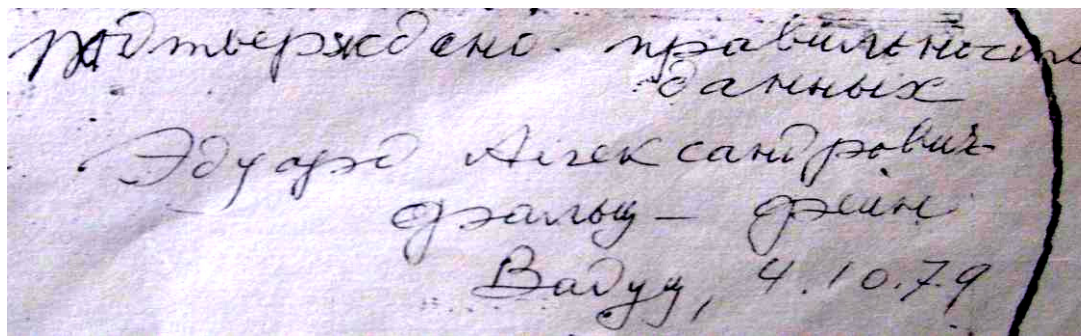 Подтверждено правильность
данных
Эдуард Александрович
Фальц-Фейн
Вадуц, 4.10.79